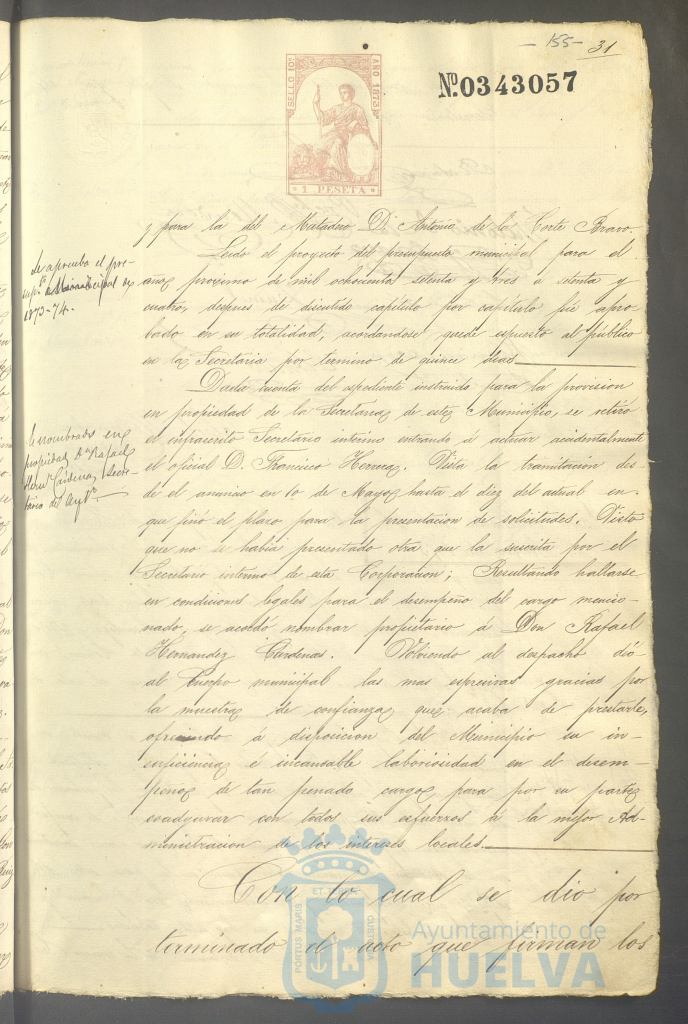 - 155 - 31
SELLO 10º
AÑO 1873
1 PESETA
Nº 0343057
y para la del Matadero, D. Antonio de la Corte Bravo.
Leido el proyecto del presupuesto municipal para el
año proximo de mil ochocientos setenta y tres a setenta y
cuatro, despues de discutido capitulo por capitulo fué apro-
bado en su totalidad, acordandose quede espuesto al público
en la Secretaria por termino de quince dias
Se aprueba el pre-
municipal de
1873-74.
Dada cuenta del espediente instruido para la provision
en propiedad de la Secretaria de este Municipio, se retiró
el infrascrito Secretario interino entrando á actuar accidentalmente
el oficial D. Francisco Herrera. Vista la tramitacion des-
de el anuncio en 10 de Mayo hasta el diez del actual en
que finó el plazo para la presentacion de solicitudes. Visto
que no se habia presentado otra que la suscrita por el
Secretario interino de esta Corporacion; Resultando hallarse
en condiciones legales para el desempeño del cargo mencio-
nado, se acordó nombrar propietario á Don Rafael
Hernandez Cárdenas. Volviendo al despacho dió
al Cuerpo municipal las mas espresivas gracias por
la muestra de confianza que acaba de prestarle,
ofreciendo á disposicion del Municipio su in-
suficiencia é incansable laboriosidad en el desem-
peño de tan penado cargo, para por su parte
coadyuvar con todos sus esfuerzos á la mejor Ad-
ministracion de los intereses locales.
nombrado en
propiedad D. Rafael
Hern. Cárdenas, Secre-
tario del Aytº.
Con lo cual se dio por
terminado el acto que firman los
PORTUS MARIS ET TERRE CUSTODIA
Ayuntamiento de
HUELVA